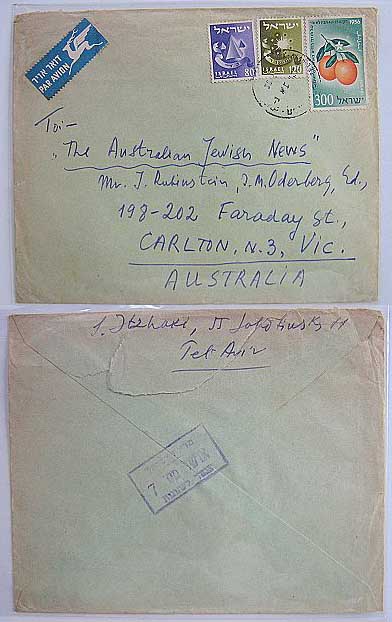 דואר אויר
PAR AVION
ישראל
ISRAEL 80
ישראל
ISRAEL 120
1956
300 ישראל
To:-
"The Australian Jewish News"
Mr. J. Rubinstein, J.M. Oderberg, Ed.,
198-202 Faraday St.,
CARLTON, N.3, Vic.
AUSTRALIA
Tel Aviv
7